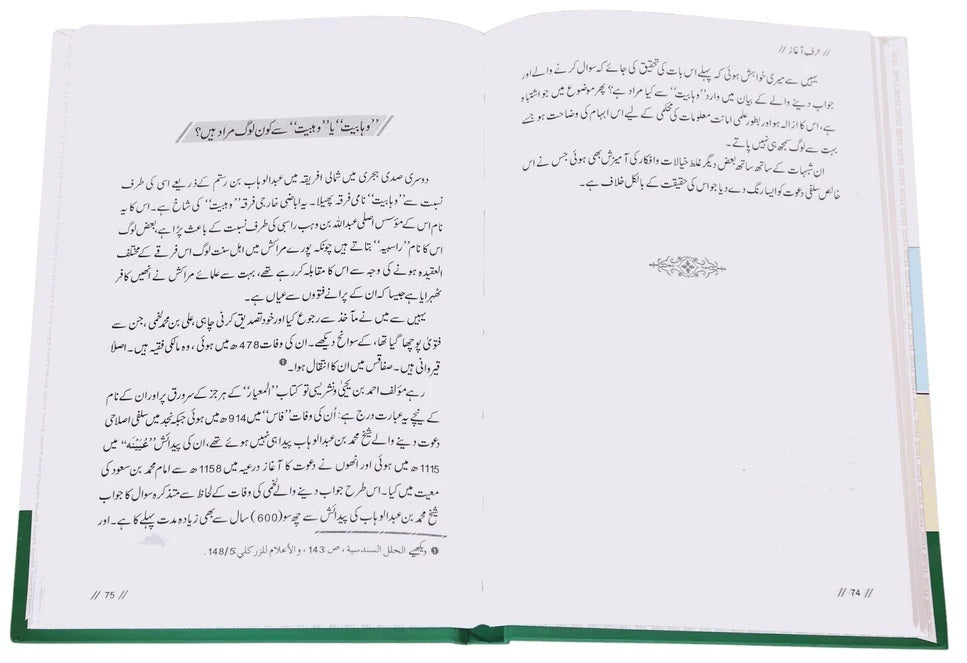 // حرف آغاز //
یہیں سے میری خواہش ہوئی کہ پہلے اس بات کی تحقیق کی جائے کہ سوال کرنے والے اور
جواب دینے والے کے بیان میں وارد ’’وہابیت‘‘ سے کیا مراد ہے؟ پھر موضوع میں جو اشتباہ
ہے، اس کا ازالہ ہو اور بطور علمی امانت معلومات کی محکمی کے لیے اس ابہام کی وضاحت ہو جسے
بہت سے لوگ سمجھ ہی نہیں پاتے۔
ان شبہات کے ساتھ ساتھ بعض دیگر غلط خیالات وافکار کی آمیزش بھی ہوئی جس نے اس
خالص سلفی دعوت کو ایسا رنگ دے دیا جو اس کی حقیقت کے بالکل خلاف ہے۔
// 74 //
’’وہابیت‘‘ یا ’’وہبیت‘‘ سے کون لوگ مراد ہیں؟
دوسری صدی ہجری میں شمالی افریقہ میں عبدالوہاب بن رستم کے ذریعے اسی کی طرف
نسبت سے ’’وہابیت‘‘ نامی فرقہ پھیلا۔ یہ اباضی خارجی فرقہ ’’وہبیت‘‘ کی شاخ ہے۔ اس کا یہ
نام اس کے مؤسس اصلی عبداللہ بن وہب راسبی کی طرف نسبت کے باعث پڑا ہے، بعض لوگ
اس کا نام ’’راسبیہ‘‘ بتاتے ہیں چونکہ پورے مراکش میں اہل سنت لوگ اس فرقے کے مختلف
العقیدہ ہونے کی وجہ سے اس کا مقابلہ کر رہے تھے، بہت سے علمائے مراکش نے انھیں کافر
ٹھہرایا ہے جیسا کہ ان کے پرانے فتووں سے عیاں ہے۔
یہیں سے میں نے مآخذ سے رجوع کیا اور خود تصدیق کرنی چاہی، علی بن محمد لخمی، جن سے
فتویٰ پوچھا گیا تھا، کے سوانح دیکھے۔ ان کی وفات 478 ھ میں ہوئی، وہ مالکی فقیہ ہیں۔ اصلًا
قیروانی ہیں۔ صفاقس میں ان کا انتقال ہوا۔ ❶
رہے مؤلف احمد بن یحییٰ ونشریسی تو کتاب ’’المعیار‘‘ کے ہر جز کے سرورق پر اور ان کے نام
کے نیچے یہ عبارت درج ہے: اُن کی وفات ’’فاس‘‘ میں 914 ھ میں ہوئی جبکہ نجد میں سلفی اصلاحی
دعوت دینے والے شیخ محمد بن عبدالوہاب پیدا ہی نہیں ہوئے تھے، ان کی پیدائش ’’عُیَیْنَہ‘‘ میں
1115 ھ میں ہوئی اور انھوں نے دعوت کا آغاز درعیہ میں 1158 ھ سے امام محمد بن سعود کی
معیت میں کیا۔ اس طرح جواب دینے والے لخمی کی وفات کے لحاظ سے متذکرہ سوال کا جواب
شیخ محمد بن عبدالوہاب کی پیدائش سے چھ سو (600) سال سے بھی زیادہ مدت پہلے کا ہے۔ اور
❶ دیکھیے الحلل السندسية ، ص: 143 ، والأعلام للزركلي: 148/5.
// 75 //